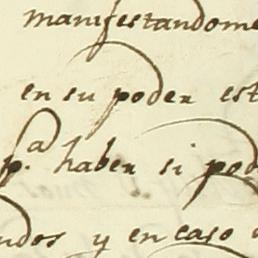 manifestandome
en su poder est
p.ª haber si pod
ndos y en caso